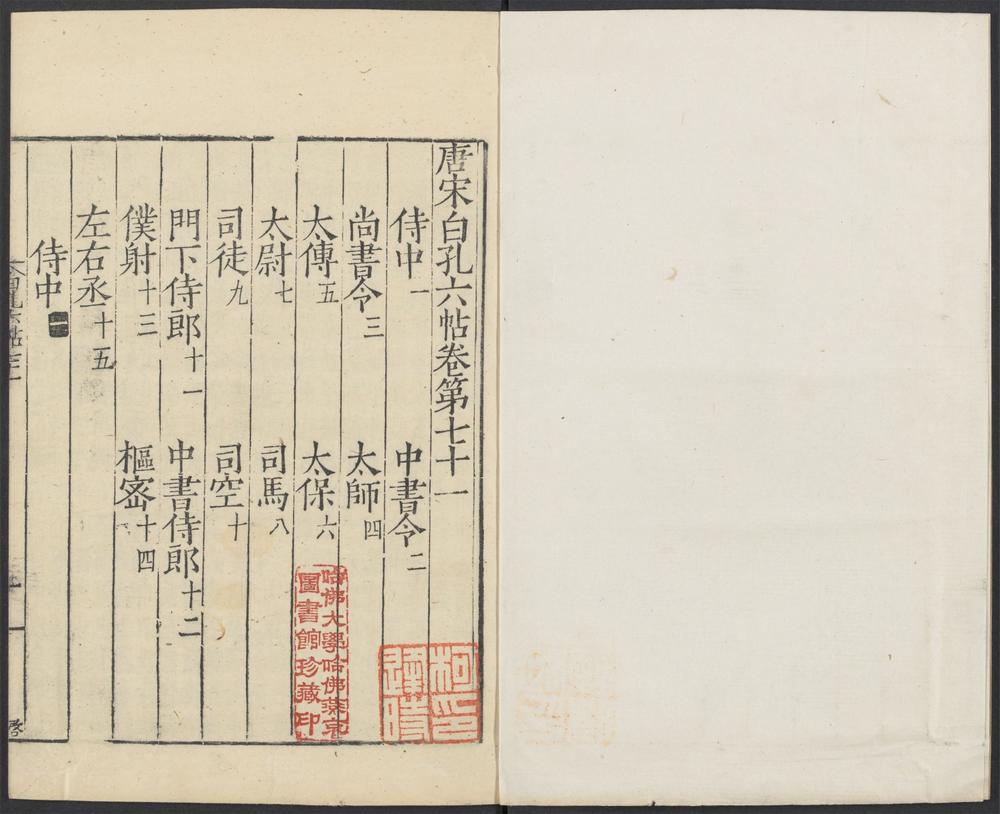 唐宋白孔六帖卷第七十一
侍中一　中書令二
尚書令三　太師四
太傅五　太保六
太尉七　司馬八
司徒九　司空十
門下侍郎十一　中書侍郎十二
僕射十三　樞密十四
左右丞十五
侍中一
哈佛大學哈佛燕京
圖書館珍藏印
柯印
逢時